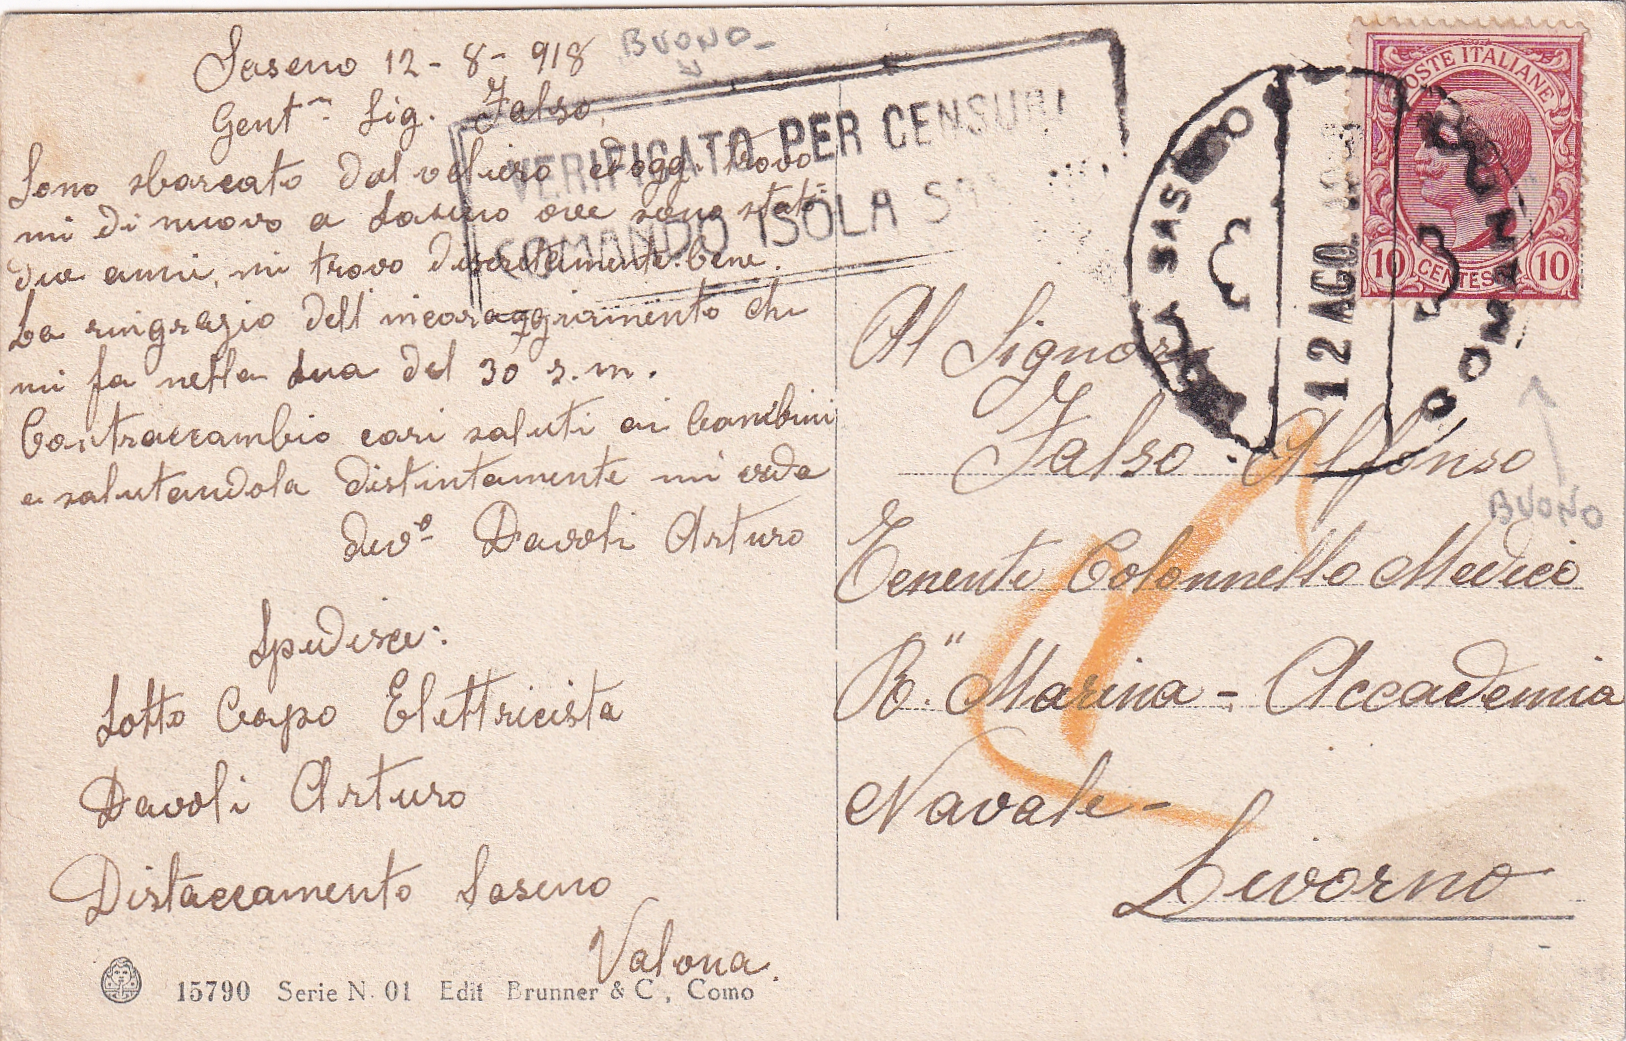 Saseno 12-8-918
BUONO
Gent.ᵐ Sig. Falso,
Sono sbarcato dal veliero ed oggi trovo
mi di nuovo a Saseno ove sono stato
due anni, mi trovo discretamente bene.
La ringrazio dell'incoraggiamento che
mi fa nella sua del 30 s.m.
Contraccambio cari saluti ai bambini
e salutandola distintamente mi creda
devº Davoli Arturo
Spedisce:
Sotto Capo Elettricista
Davoli Arturo
Distaccamento Saseno
Valona.
15790 Serie N. 01 Edit Brunner & C., Como
VERIFICATO PER CENSURA
COMANDO ISOLA
ISOLA SASENO
12 AGO
COMAN
POSTE ITALIANE
10 CENTES 10
Al Signor
Falso Alfonso
Tenente Colonnello Medico
BUONO
R." Marina - Accademia
Navale -
Livorno